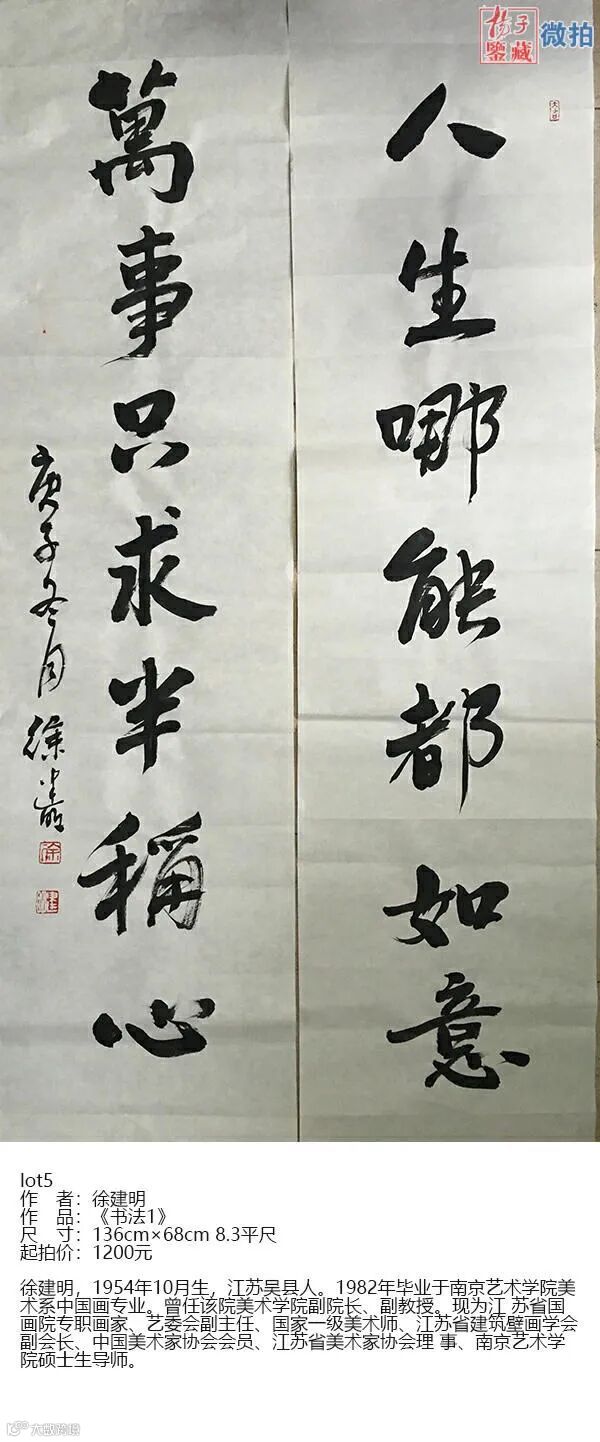 扬子
鉴藏
微拍
人生哪能都如意
萬事只求半稱心
庚子冬月 徐建明
lot5
作 者：徐建明
作 品：《书法1》
尺 寸：136cm×68cm 8.3平尺
起拍价：1200元
徐建明，1954年10月生，江苏吴县人。1982年毕业于南京艺术学院美
术系中国画专业。曾任该院美术学院副院长、副教授。现为江 苏省国
画院专职画家、艺委会副主任、国家一级美术师、江苏省建筑壁画学会
副会长、中国美术家协会会员、江苏省美术家协会理 事、南京艺术学
院硕士生导师。
大数跨境